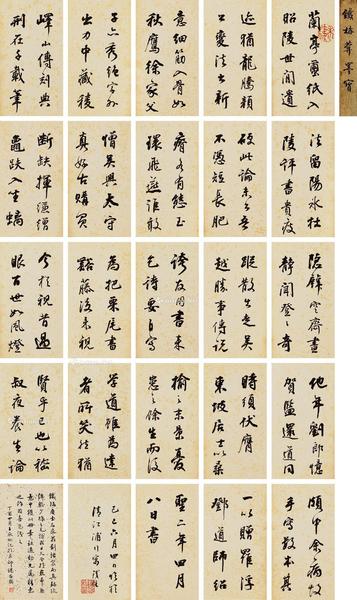 蘭亭繭紙入
昭陵世間遺
跡猶龍騰顏
公變法出新
意細筋入骨如
秋鷹徐家父
子亦秀絕字外
出力中藏稜
嶧山傳刻典
刑在千載筆
法留陽冰杜
陵評書貴瘦
硬此論未公吾
不憑短長肥
瘠各有態玉
環飛燕誰敢
憎吳興太守
真好古購買
斷缺揮縑繒
龜趺入坐螭
隱壁空齋晝
靜聞登登奇
蹤散出走吳
越勝事傳說
誇友朋書來
乞詩要自寫
為把栗尾書
谿藤後來視
今猶視昔過
眼百世如風燈
他年劉郎憶
賀監還道同
時須伏膺
東坡居士以桑
榆之末景憂
患之餘生而後
學道雖為達
者所笑然猶
賢乎已也以嵇
叔夜養生論
頗中余之病故
手寫數本其
一以贈羅浮
鄧道師紹
聖二年四月
八日書
己巳六月四日作於
清江浦行寓